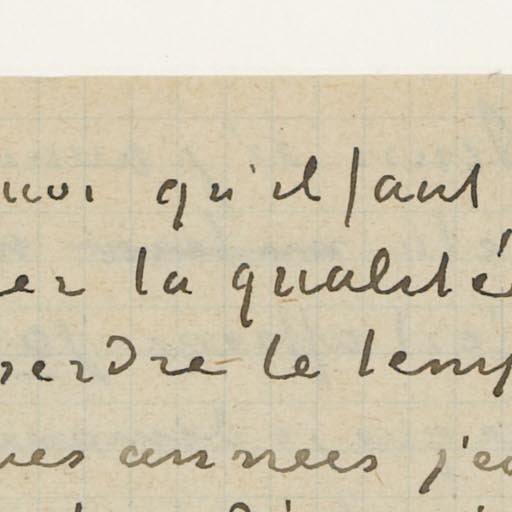 uoi qu'il faut
er la qualité
perdre le temp
ues annees j'ea